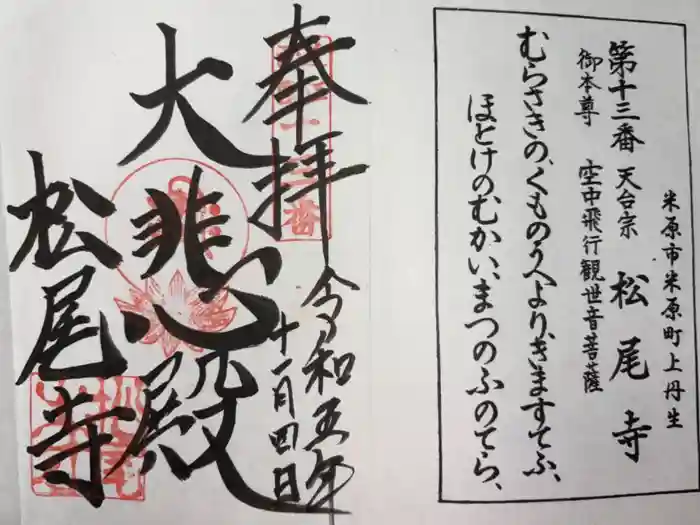 米原市米原町上丹生
第十三番 天台宗 松尾寺
御本尊 空中飛行観世音菩薩
むらさきの、くものうへより、きますてふ、
ほとけのむかい、まつのふのてら、
奉拝
令和五年
十一月四日
大悲心殿
松尾寺